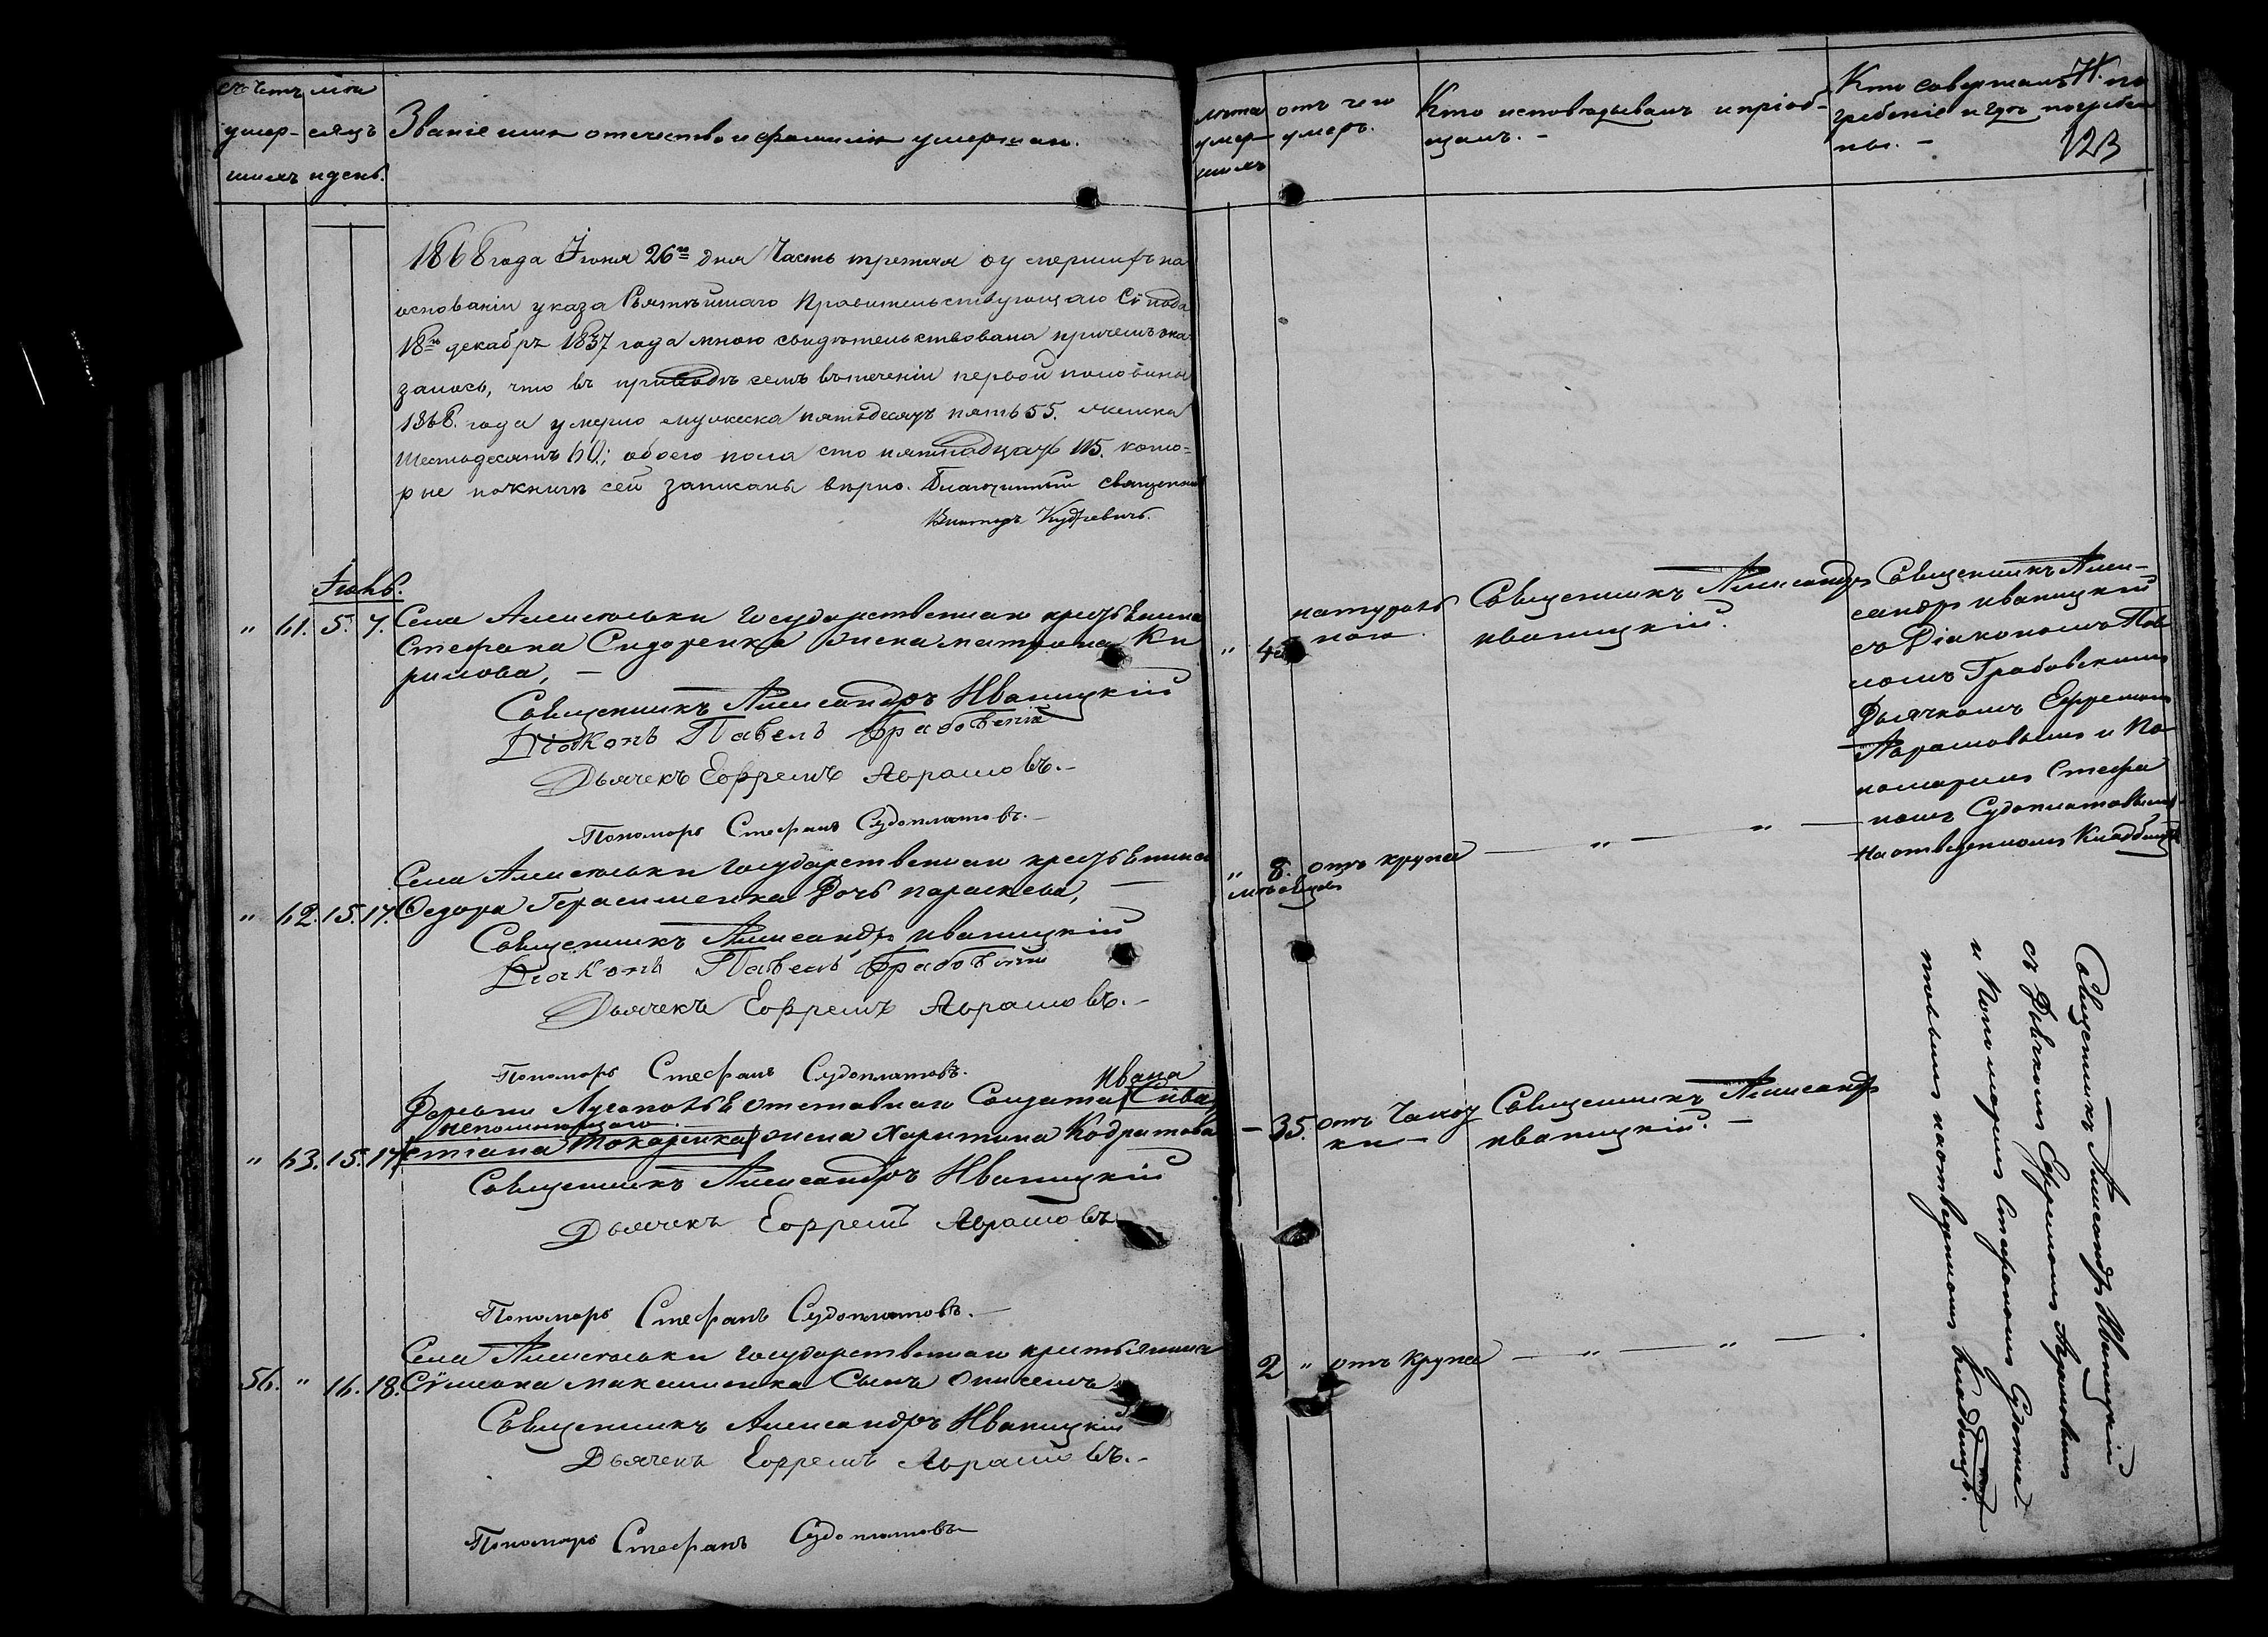 Счетъ
умер-
шихъ
мѣ
сяцъ
и день.
Званіе имя отечество и фамилія умершаго.
лѣта
умер
шихъ
отъ чего
умеръ.
Кто исповѣдывалъ и пріоб-
щалъ. -
Кто совершалъ по
гребеніе и гдѣ погребе
ны. -
123
1868 года Іюня 26го дня Часть третяя о умершихъ на
основаніи указа Святѣйшаго Правительствующаго Сѵнода
18го декабря 1837 года мною свидѣтельствована причемъ ока
залось, что въ приходѣ семъ въ теченіи первой половины
1868. года умерло мужеска пятьдесятъ пять 55. женска
Шестьдесятъ 60; обоего пола сто пятнадцать 115. кото=
рые по книгѣ сей записаны вѣрно. Благочинный священник
Викторъ Кудревичъ.
Іюль.
" 61. 5. 7. Села Алексѣевки государственнаго крестьянина
Стефана Сидоренка жена матрона Ки
рилова, —
Священникъ Александръ Иваницкій
Діаконъ Павелъ Грабовскій
Дьячекъ Ефремъ Аврамовъ. -
Пономарь Стефанъ Судоплатовъ. -
" 4 натураль
ного.
Священникъ Александръ
иваницкій.
Священникъ Алек-
сандръ иваницкій
съ Діакономъ Пав
ломъ Грабовскимъ
Дьячкомъ Ефремомъ
Аврамовымъ и По
номаремъ Стефа
номъ Судоплатовымъ
На отведенномъ Кладбищѣ
" 62. 15. 17. Села Алексѣевки государственнаго крестьянина
Федора Герасименка Дочь параскева, —
Священникъ Александръ иваницкій
Діаконъ Павелъ Грабовскій
Дьячекъ Ефремъ Аврамовъ. -
Пономарь Стефанъ Судоплатовъ. -
" 8. отъ крупа — " — " —
мѣсяцовъ
Ивана
Деревни Отставнаго Солдата
непомнющаго
" 63. 15. 17. Токаренка жена Харитина Кодратова
Священникъ Александръ Иваницкій
Дьячекъ Ефремъ Аврамовъ
Пономарь Стефанъ Судоплатовъ. —
— 35. отъ Чахот
ки —
Священникъ Александръ
иваницкій. —
56. " 16. 18. Села Алексѣевки государственнаго крестьянина
Сѵмеона максименка Сынъ Онисимъ
Священникъ Александръ Иваницкій
Дьячекъ Ефремъ Аврамовъ. -
Пономарь Стефанъ Судоплатовъ
2 " отъ Крупа — " — " —
Священникъ Александръ Иваницкій
съ Дьячкомъ Ефремомъ Аврамовымъ
и Пономаремъ Стефаномъ Судопла-
товымъ на отведенномъ кладбищѣ.